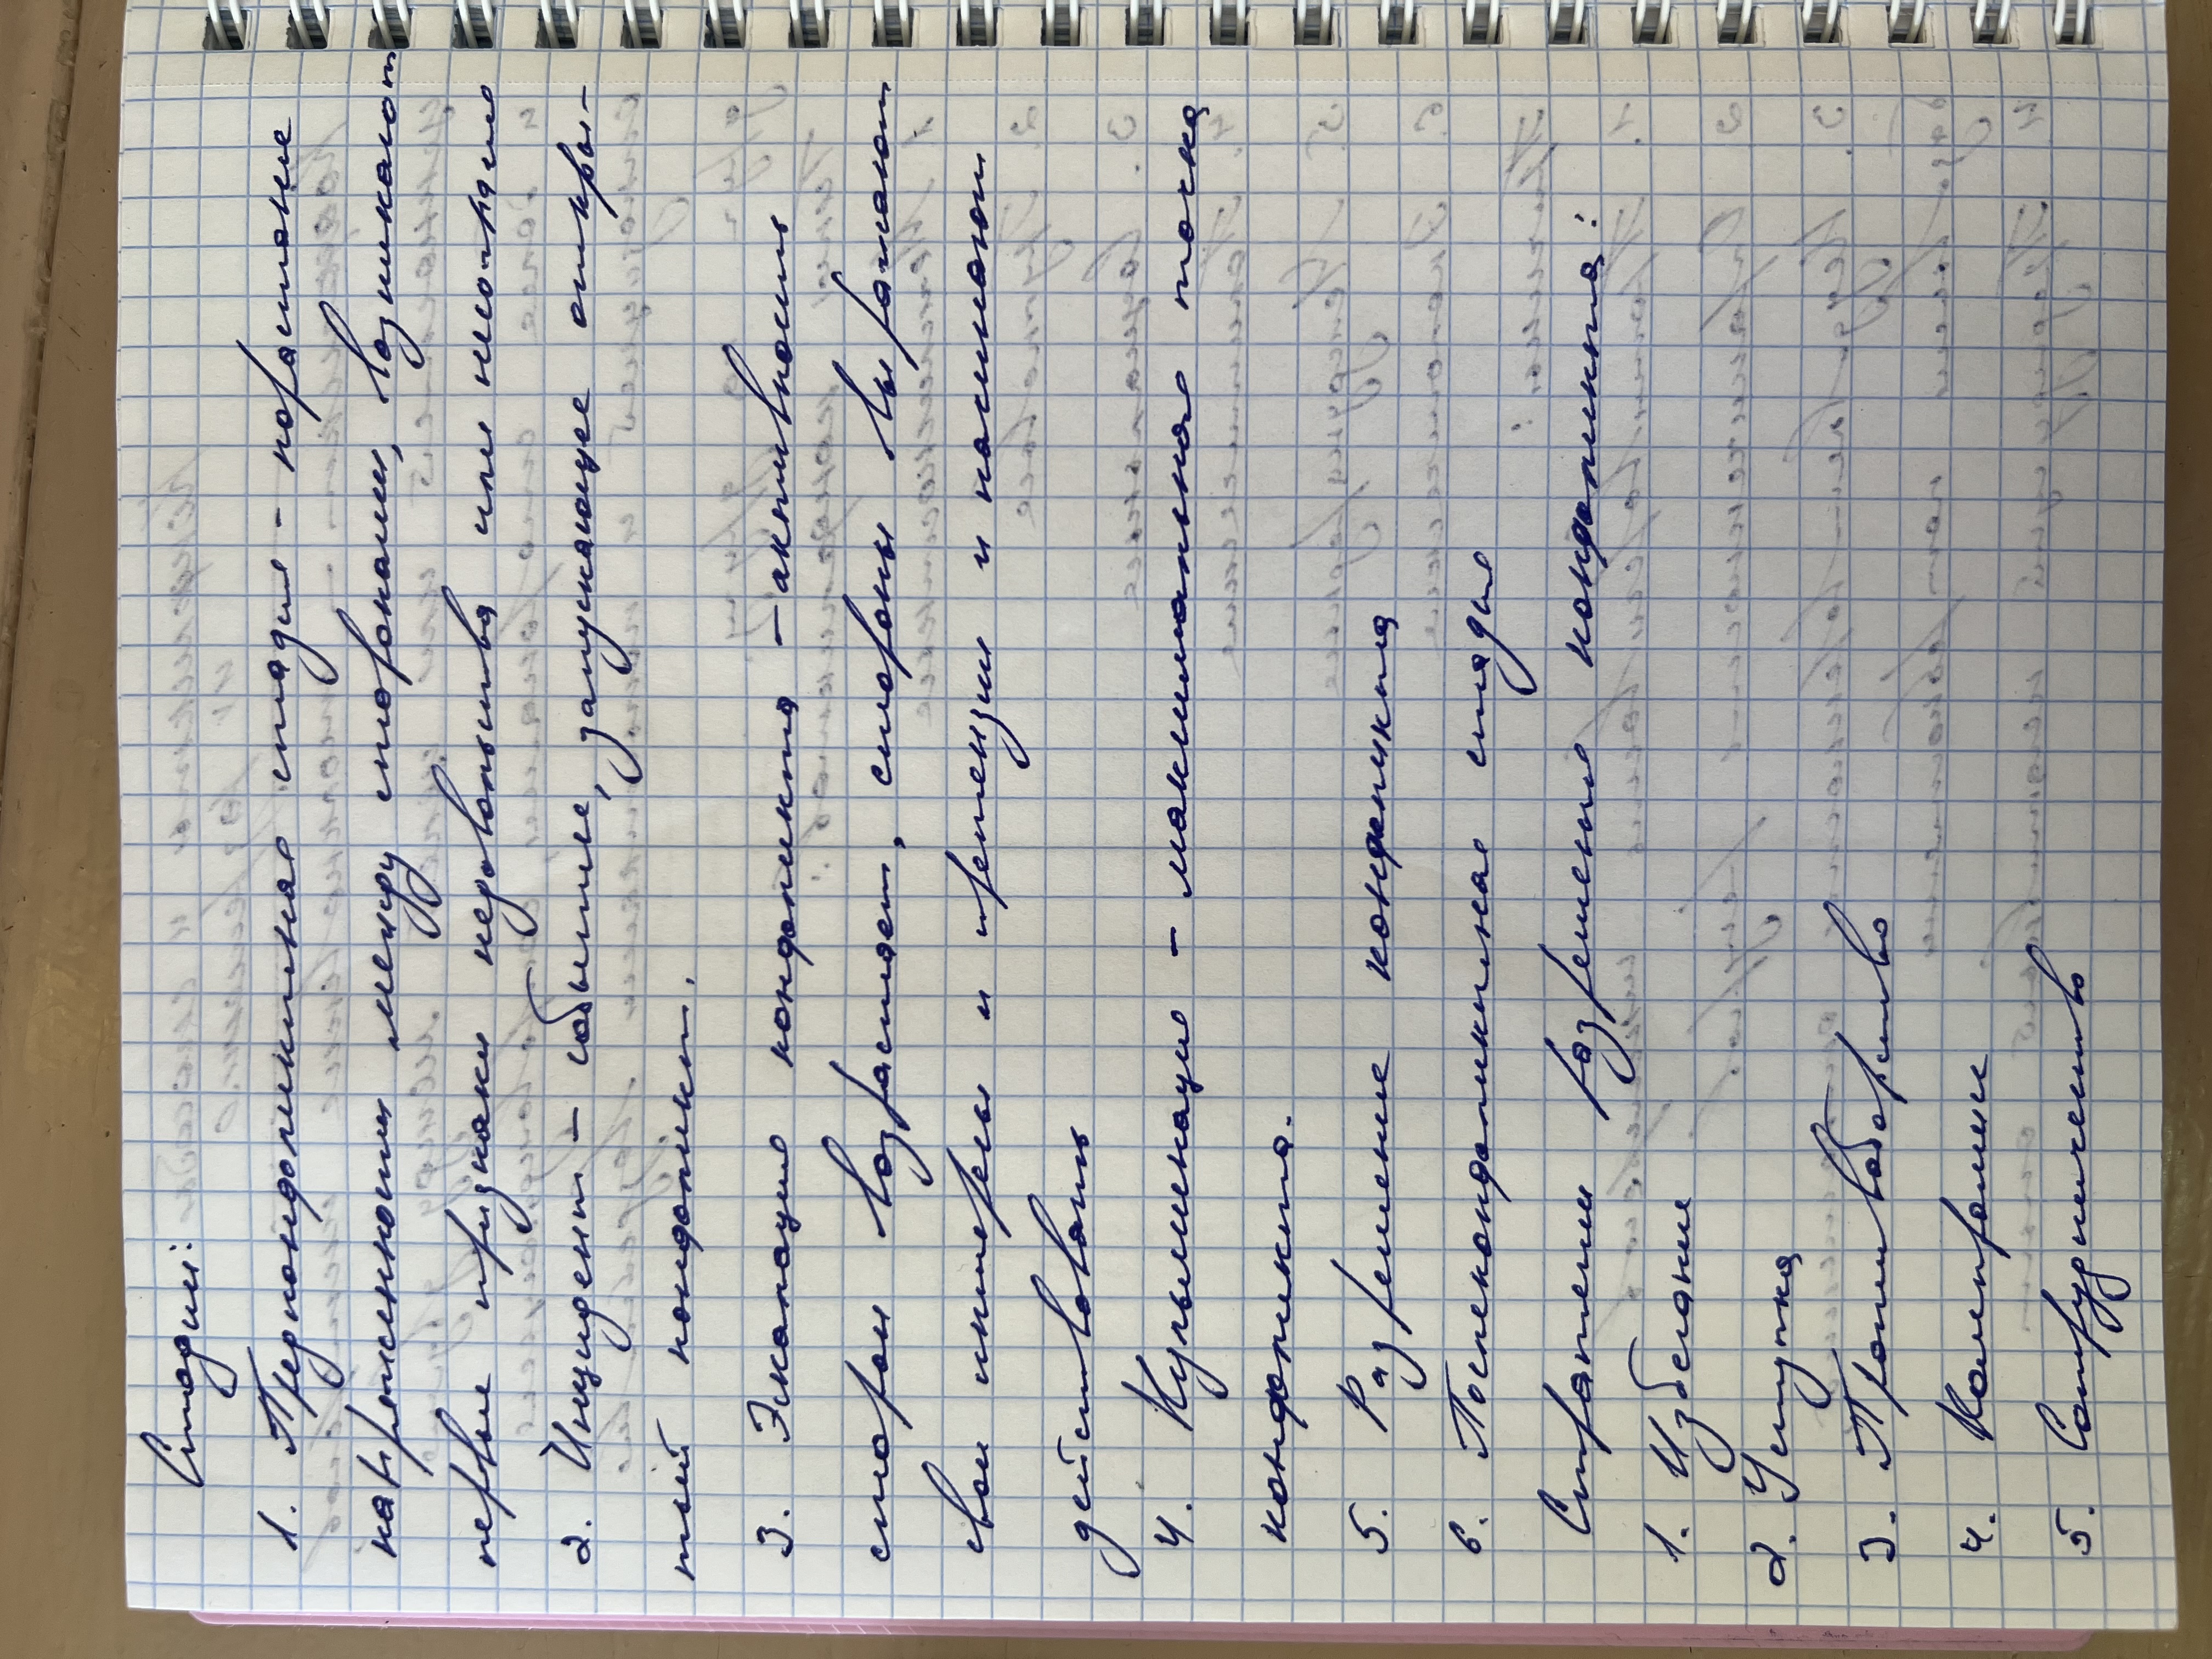 Стадии:
1. Предконфликтная стадия - нарастание
напряженности между сторонами, возникают
первые признаки недовольства или неприязни
2. Инцидент - событие, запускающее откры-
тый конфликт.
3. Эскалация конфликта - активность
сторон возрастает, стороны выражают
свои интересы и претензии и начинают
действовать
4. Кульминация - максимальная точка
конфликта.
5. Разрешение конфликта
6. Постконфликтная стадия
Стратегии разрешения конфликта:
1. Избегание
2. Уступка
3. Противоборство
4. Компромисс
5. Сотрудничество